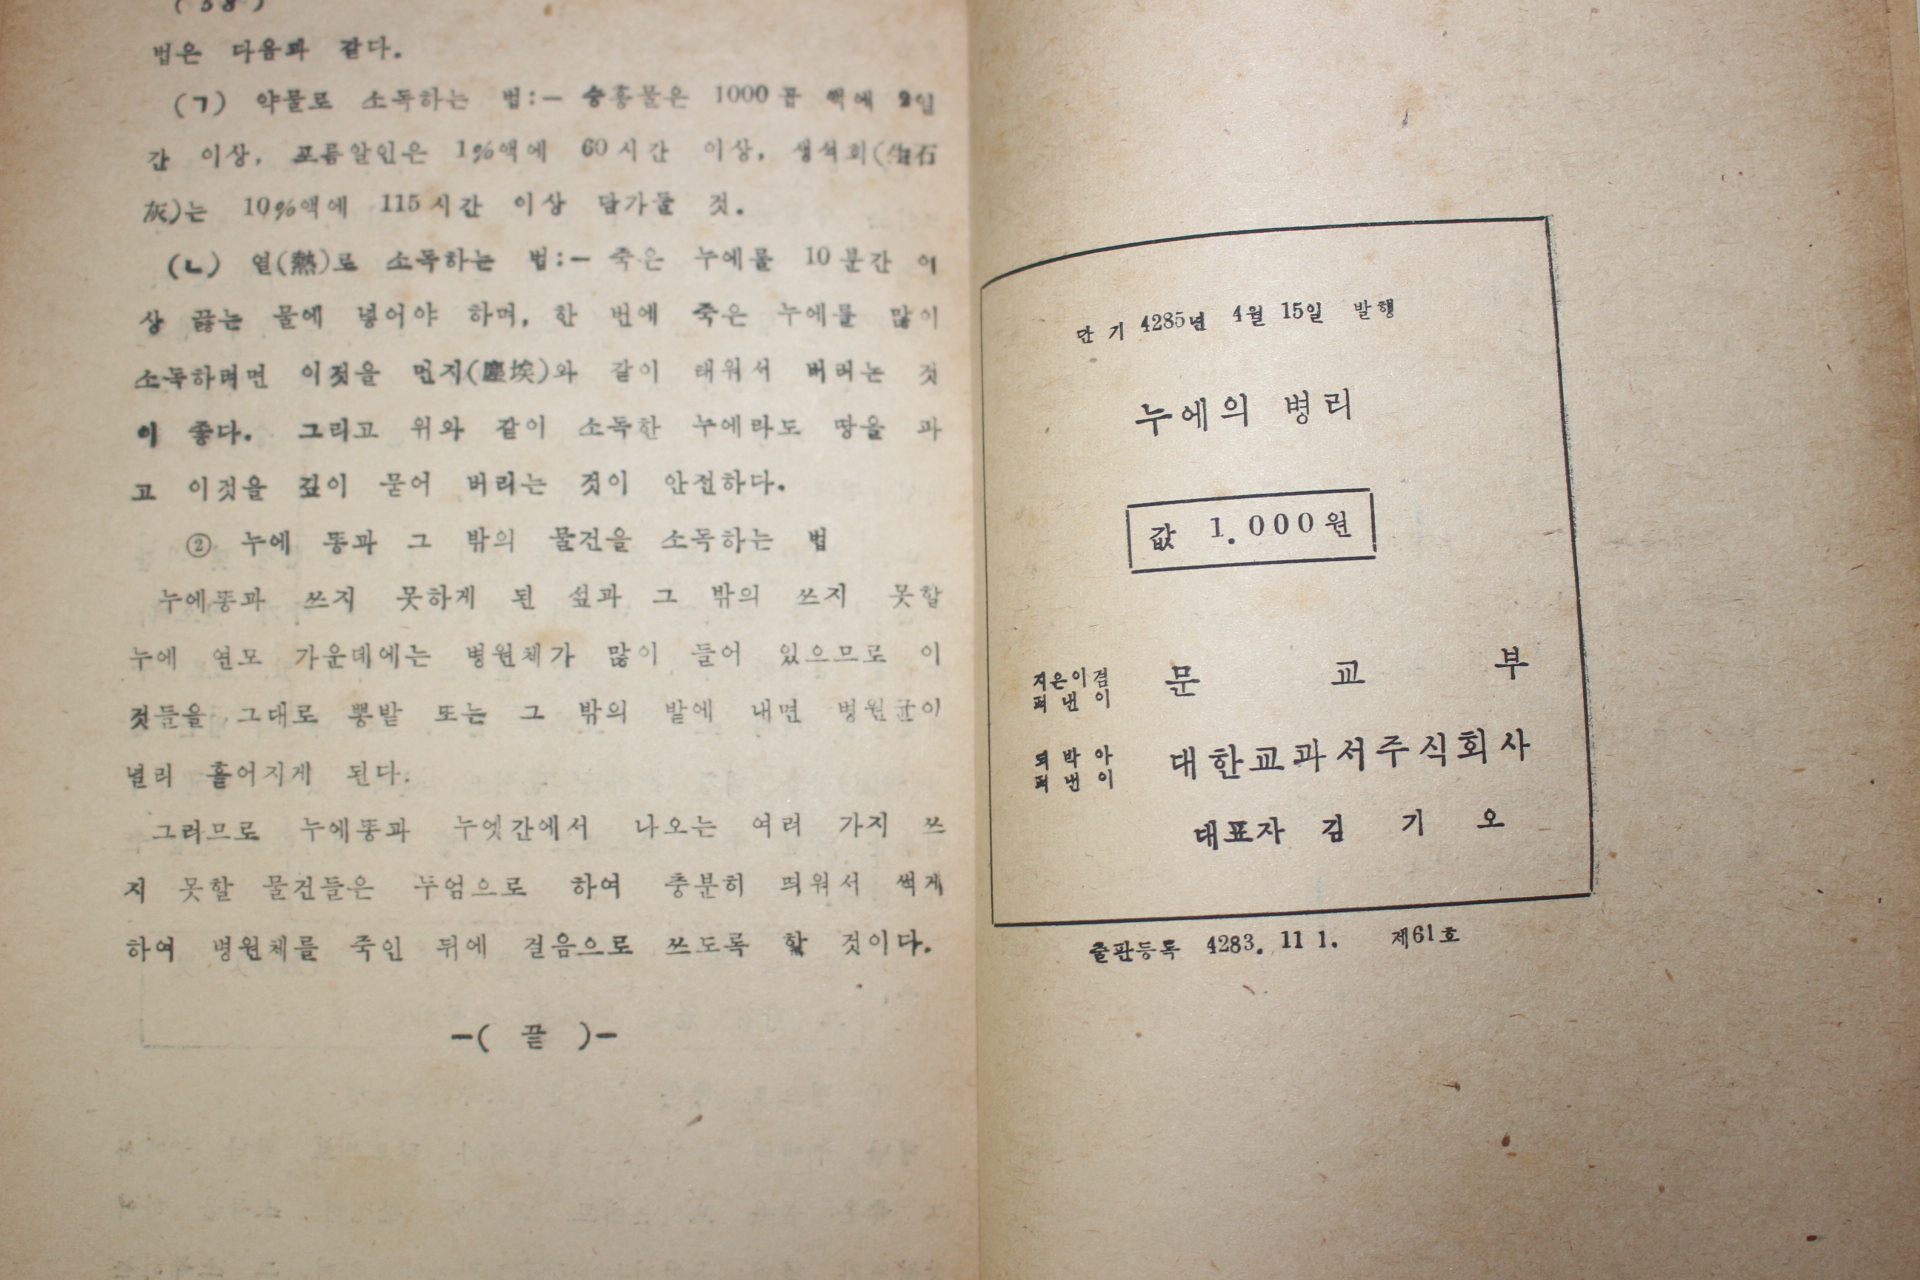 법은 다음과 같다.
(ㄱ) 약물로 소독하는 법:— 승홍물은 1000곱 액에 2일
간 이상, 포름알인은 1%액에 60시간 이상, 생석회(生石
灰)는 10%액에 115시간 이상 담가둘 것.
(ㄴ) 열(熱)로 소독하는 법:— 죽은 누에를 10분간 이
상 끓는 물에 넣어야 하며, 한 번에 죽은 누에를 많이
소독하려면 이것을 먼지(塵埃)와 같이 태워서 버리는 것
이 좋다. 그리고 위와 같이 소독한 누에라도 땅을 파
고 이것을 깊이 묻어 버리는 것이 안전하다.
② 누에 똥과 그 밖의 물건을 소독하는 법
누에똥과 쓰지 못하게 된 섶과 그 밖의 쓰지 못할
누에 연모 가운데에는 병원체가 많이 들어 있으므로 이
것들을 그대로 뽕밭 또는 그 밖의 밭에 내면 병원균이
널리 흩어지게 된다.
그러므로 누에똥과 누엣간에서 나오는 여러 가지 쓰
지 못할 물건들은 두엄으로 하여 충분히 띄워서 썩게
하여 병원체를 죽인 뒤에 걸음으로 쓰도록 할 것이다.
—( 끝 )—
단기 4285년 4월 15일 발행
누에의 병리
값 1.000원
지은이겸
펴낸이 문교부
되박아
펴낸이 대한교과서주식회사
대표자 김기오
출판등록 4283. 11 1. 제61호